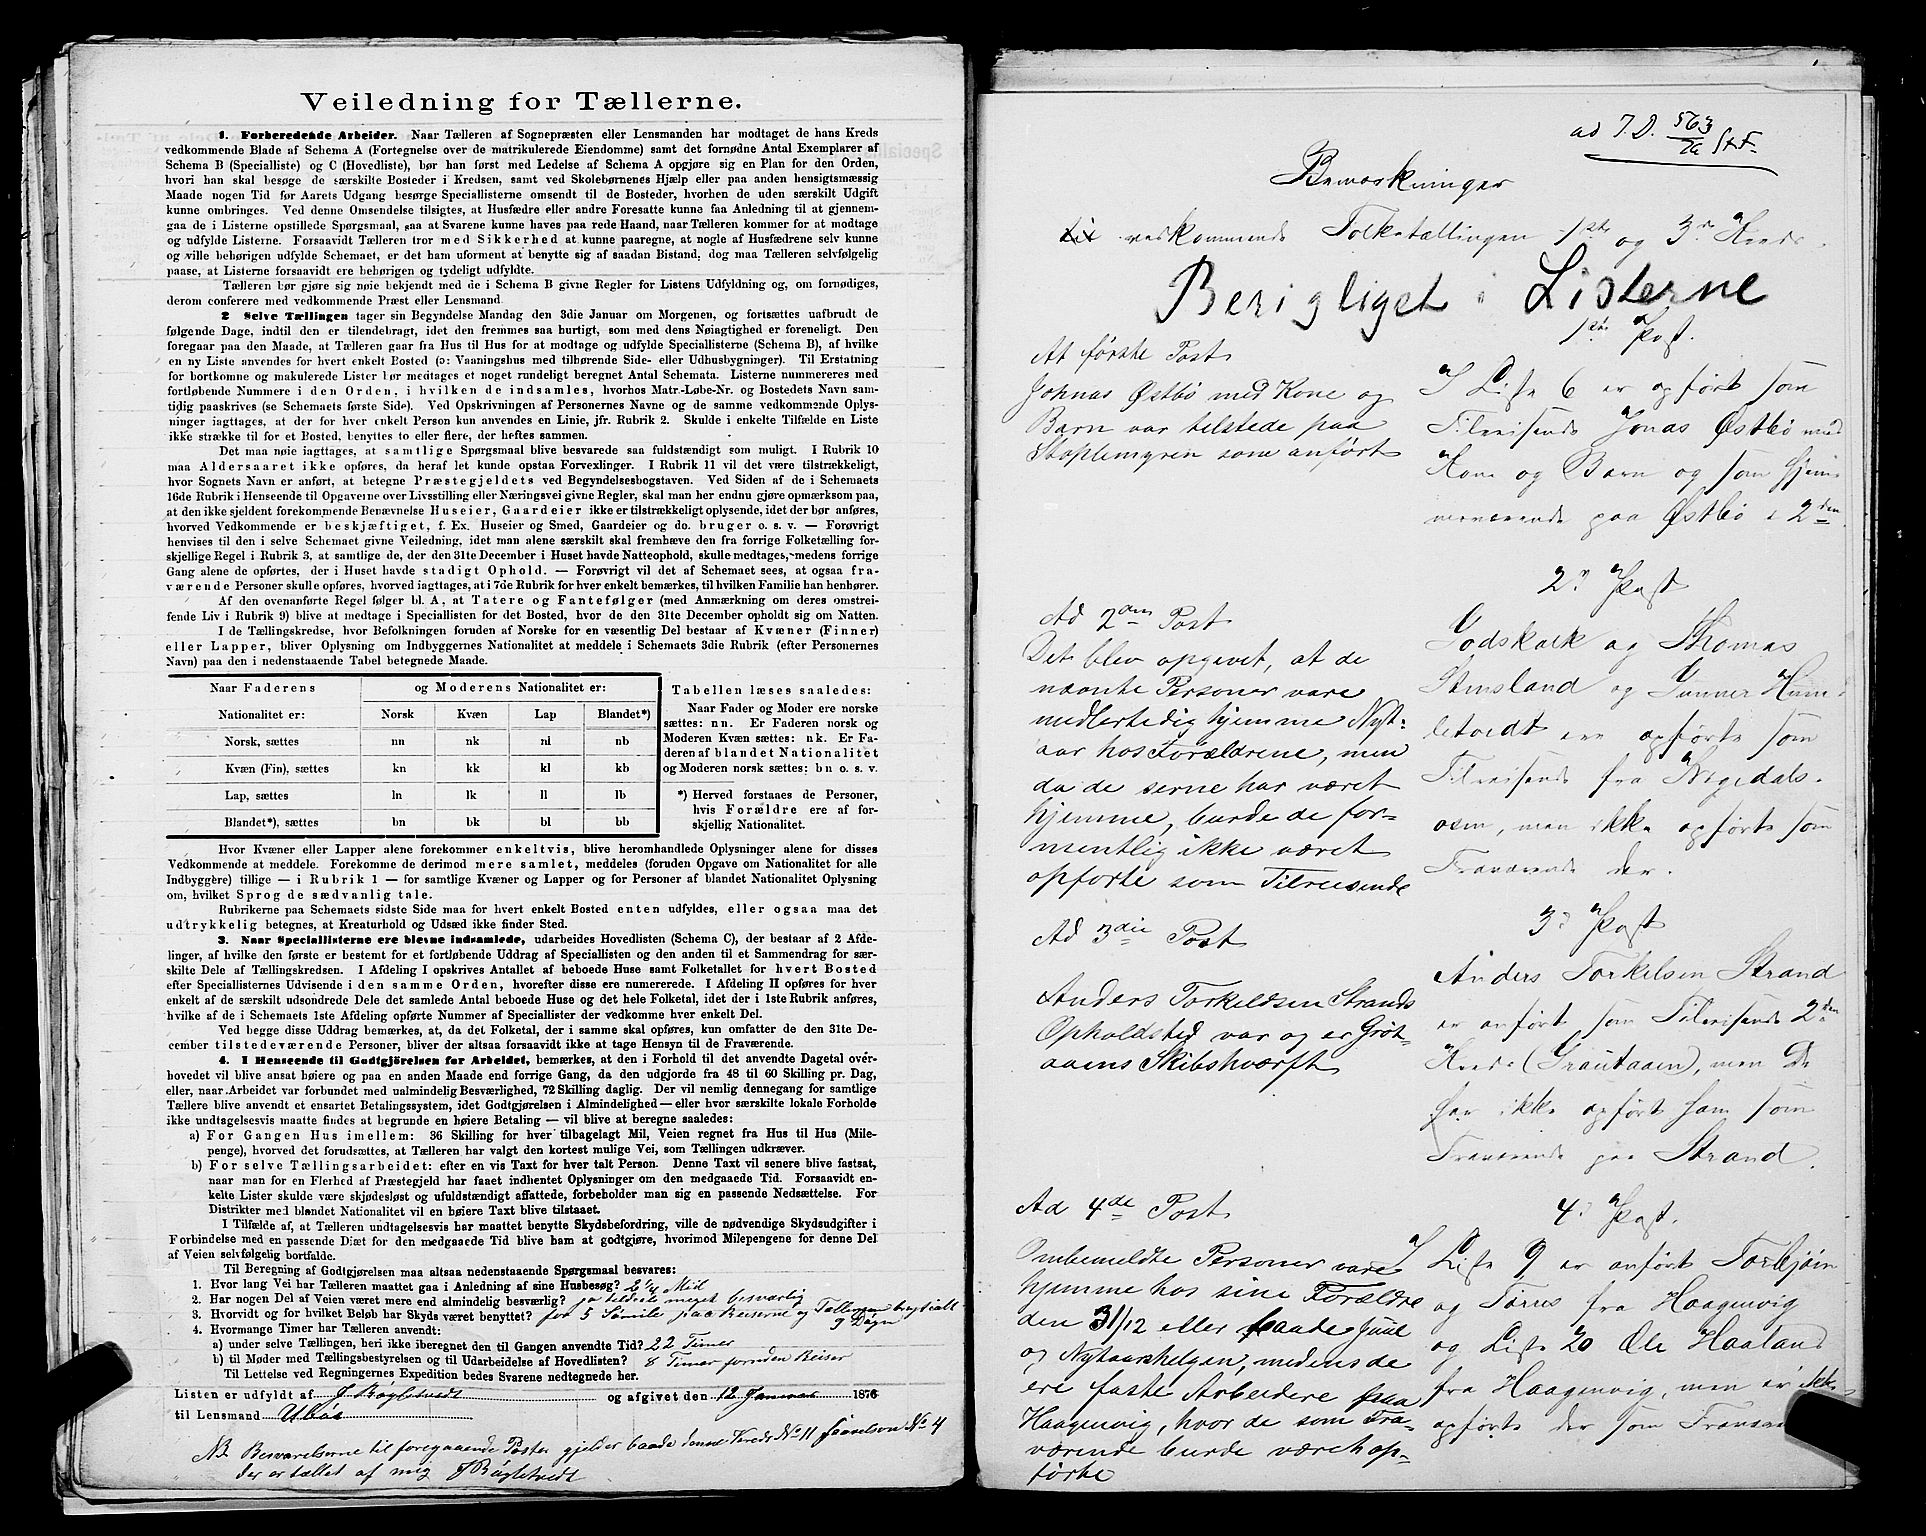 Veiledning for Tællerne.
1. Forberedende Arbeider. Naar Tælleren af Sognepræsten eller Lensmanden har modtaget de hans Kreds
vedkommende Blade af Schema A (Fortegnelse over de matrikulerede Eiendomme) samt det fornødne Antal Exemplarer af
Schema B (Specialliste) og C (Hovedliste), bør han først med Ledelse af Schema A opgjøre sig en Plan for den Orden,
hvori han skal besøge de særskilte Bosteder i Kredsen, samt ved Skolebørnenes Hjælp eller paa anden hensigtsmæssig
Maade nogen Tid før Aarets Udgang besørge Speciallisterne omsendt til de Bosteder, hvorhen de uden særskilt Udgift
kunne ombringes. Ved denne Omsendelse tilsigtes, at Husfædre eller andre Foresatte kunne faa Anledning til at gjennem-
gaa de i Listerne opstillede Spørgsmaal, saa at Svarene kunne haves paa rede Haand, naar Tælleren kommer for at modtage
og udfylde Listerne. Forsaavidt Tælleren tror med Sikkerhed at kunne paaregne, at nogle af Husfædrene selv kunne
og ville behørigen udfylde Schemaet, er det ham uforment at benytte sig af saadan Bistand, dog maa Tælleren selvfølgelig
paase, at Listerne forsaavidt ere behørigen og tydeligt udfyldte.
Tælleren bør gjøre sig nøie bekjendt med de i Schema B givne Regler for Listens Udfyldning og, om fornødiges,
derom conferere med vedkommende Præst eller Lensmand.
2 Selve Tællingen tager sin Begyndelse Mandag den 3die Januar om Morgenen, og fortsættes uafbrudt de
følgende Dage, indtil den er tilendebragt, idet den fremmes saa hurtigt, som med dens Nøiagtighed er foreneligt. Den
foregaar paa den Maade, at Tælleren gaar fra Hus til Hus for at modtage og udfylde Speciallisterne (Schema B), af hvilke
en ny Liste anvendes for hvert enkelt Bosted (ɔ: Vaaningshus med tilhørende Side- eller Udhusbygninger). Til Erstatning
for bortkomne og makulerede Lister bør medtages et noget rundeligt beregnet Antal Schemata. Listerne nummereres med
fortløbende Nummere i den Orden, i hvilken de indsamles, hvorhos Matr.-Løbe-Nr. og Bostedets Navn sam-
tidig paaskrives (se Schemaets første Side). Ved Opskrivningen af Personernes Navne og de samme vedkommende Oplys-
ninger iagttages, at der for hver enkelt Person kun anvendes en Linie, jfr. Rubrik 2. Skulde i enkelte Tilfælde en Liste
ikke strække til for et Bosted, benyttes to eller flere, der heftes sammen.
Det maa nøie iagttages, at samtlige Spørgsmaal blive besvarede saa fuldstændigt som muligt. I Rubrik 10
maa Aldersaaret ikke opføres, da heraf let kunde opstaa Forvexlinger. I Rubrik 11 vil det være tilstrækkeligt,
hvor Sognets Navn er anført, at betegne Præstegjeldets ved Begyndelsesbogstaven. Ved Siden af de i Schemaets
16de Rubrik i Henseende til Opgaverne over Livsstilling eller Næringsvei givne Regler, skal man her endnu gjøre opmærksom paa,
at den ikke sjeldent forekommende Benævnelse Huseier, Gaardeier ikke er tilstrækkeligt oplysende, idet der bør anføres,
hvorved Vedkommende er beskjæftiget, f. Ex. Huseier og Smed, Gaardeier og do. bruger o. s. v. — Forøvrigt
henvises til den i selve Schemaet givne Veiledning, idet man alene særskilt skal fremhæve den fra forrige Folketælling for-
skjellige Regel i Rubrik 3, at samtlige de, der den 31te December i Huset havde Natteophold, skulle medtages, medens forrige
Gang alene de opførtes, der i Huset havde stadigt Ophold. — Forøvrigt vil det af Schemaet sees, at ogsaa fra-
værende Personer skulle opføres, hvorved iagttages, at i 7de Rubrik for hver enkelt bemærkes, til hvilken Familie han henhører.
Af den ovenanførte Regel følger bl. A, at Tatere og Fantefølger (med Anmærkning om deres omstrei-
fende Liv i Rubrik 9) blive at medtage i Speciallisten for det Bosted, hvor de den 31te December opholdt sig om Natten.
I de Tællingskredse, hvor Befolkningen foruden af Norske for en væsentlig Del bestaar af Kvæner (Finner)
eller Lapper, bliver Oplysning om Indbyggernes Nationalitet at meddele i Schemaets 3die Rubrik (efter Personernes
Navn) paa den i nedenstaaende Tabel betegnede Maade.
Naar Faderens og Moderens Nationalitet er:
Nationalitet er: Norsk Kvæn Lap Blandet*)
Norsk, sættes nn nk nl nb
Kvæn (Fin), sættes kn kk kl kb
Lap, sættes ln lk ll lb
Blandet*), sættes bn bk bl bb
Tabellen læses saaledes:
Naar Fader og Moder ere norske
sættes: nn. Er Faderen norsk og
Moderen Kvæn sættes: nk. Er Fa-
deren af blandet Nationalitet
og Moderen norsk sættes: bn o. s. v.
*) Herved forstaaes de Personer,
hvis Forældre ere af for-
skjellig Nationalitet.
Hvor Kvæner eller Lapper alene forekommer enkeltvis, blive heromhandlede Oplysninger alene for disses
Vedkommende at meddele. Forekomme de derimod mere samlet, meddeles (foruden Opgave om Nationalitet for alle
Indbyggere) tillige — i Rubrik 1 — for samtlige Kvæner og Lapper og for Personer af blandet Nationalitet Oplysning
om, hvilket Sprog de sædvanlig tale.
Rubrikerne paa Schemaets sidste Side maa for hvert enkelt Bosted enten udfyldes, eller ogsaa maa det
udtrykkelig betegnes, at Kreaturhold og Udsæd ikke finder Sted.
3. Naar Speciallisterne ere blevne indsamlede, udarbeides Hovedlisten (Schema C), der bestaar af 2 Afde-
linger, af hvilke den første er bestemt for et fortløbende Uddrag af Speciallisten og den anden til et Sammendrag for sær-
skilte Dele af Tællingskredsen. I Afdeling I opskrives Antallet af beboede Huse samt Folketallet for hvert Bosted
efter Speciallisternes Udvisende i den samme Orden, hvorefter disse ere numererede. I Afdeling II opføres for hver
enkelt af de særskilt udsondrede Dele det samlede Antal beboede Huse og det hele Folketal, idet der i 1ste Rubrik anføres,
hvilke af de i Schemaets 1ste Afdeling opførte Nummer af Speciallister der vedkomme hver enkelt Del.
Ved begge disse Uddrag bemærkes, at, da det Folketal, der i samme skal opføres, kun omfatter de den 31te De-
cember tilstedeværende Personer, bliver der altsaa forsaavidt ikke at tage Hensyn til de Fraværende.
4. I Henseende til Godtgjørelsen for Arbeidet, bemærkes, at den i Forhold til det anvendte Dagetal over-
hovedet vil blive ansat høiere og paa en anden Maade end forrige Gang, da den udgjorde fra 48 til 60 Skilling pr. Dag,
eller, naar Arbeidet var forbundet med ualmindelig Besværlighed, 72 Skilling daglig. Der vil nemlig dennegang for samtlige
Tællere blive anvendt et ensartet Betalingssystem, idet Godtgjørelsen i Almindelighed — eller hvor særskilte lokale Forholde
ikke undtagelsesvis maatte findes at begrunde en høiere Betaling — vil blive at beregne saaledes:
a) For Gangen Hus imellem: 36 Skilling for hver tilbagelagt Mil, Veien regnet fra Hus til Hus (Mile-
penge), hvorved det forudsættes, at Tælleren har valgt den kortest mulige Vei, som Tællingen udkræver.
b) For selve Tællingsarbeidet: efter en vis Taxt for hver talt Person. Denne Taxt vil senere blive fastsat,
naar man for en Flerhed af Præstegjeld har faaet indhentet Oplysninger om den medgaaede Tid. Forsaavidt en-
kelte Lister skulde være skjødesløst og ufuldstændigt affattede, forbeholder man sig en passende Nedsættelse. For
Distrikter med blandet Nationalitet vil en høiere Taxt blive tilstaaet.
I Tilfælde af, at Tælleren undtagelsesvis har maattet benytte Skydsbefordring, ville de nødvendige Skydsudgifter i
Forbindelse med en passende Diæt for den medgaaede Tid blive ham at godtgjøre, hvorimod Milepengene for denne Del
af Veien selvfølgelig bortfalde.
Til Beregning af Godtgjørelsen maa altsaa nedenstaaende Spørgsmaal besvares:
1. Hvor lang Vei har Tælleren maattet gaa i Anledning af sine Husbesøg? 2 1/4 Miil
2. Har nogen Del af Veien været mere end almindelig besværlig? ja tildeels meget besværlig
3. Hvorvidt og for hvilket Beløb har Skyds været benyttet? for 5 Sømile paa Reiserne og Tællingen
9 Døgn
4. Hvormange Timer har Tælleren anvendt:
a) under selve Tællingen, heri ikke iberegnet den til Gangen anvendte Tid? 22 Timer
b) til Møder med Tællingsbestyrelsen og til Udarbeidelse af Hovedlisten? 8 Timer foruden Reiser
Til Lettelse ved Regningernes Expedition bedes Svarene nedtegnede her.
Listen er udfyldt af J Bøgletvedt og afgivet den 12 Januar 1876
til Lensmand Ubøe
NB. Besvarelserne til foregaaende Poster gjelder baade denne Kreds No 11 No 4
der er tællet af mig J Bøgletvedt
ad J.D. 563/76 StF.
Bemærkninger
vedkommende Folketællingen 1ste og 3die Kreds.
Berigtiget i Listerne
At første Post
Johnas Østbø med Kone og
Barn var tilstede paa
Stoplemyren som anført
Ad 2den Post
Det blev opgevet, at de
nævnte Personer vare
midlertidig hjemme Nyt-
aar hos Forældrene, men
da de gerne har været
hjemme, burde de for-
mentlig ikke været
opførte som Tilreisende
Ad 3die Post
Anders Torkildsen Strands
Opholdsted var og er Grøt-
aaens Skibsværft
Ad 4de Post
Ombemeldte Personer vare
hjemme hos sine Forældre
den 31/12 eller baade Juul
og Nytaarshelgen, medens de
ere faste Arbeidere paa
Haagenvig, hvor de som Fra-
værende burde været op-
førte
1ste Post.
I Liste 6 er opført som
Tilreisende Jonas Østbø med
Kone og Barn og som hjem-
meværende paa Østbø i 2den
2n Post
Godskalk og Thomas
Stensland og Gunner Hum-
letvedt ere opførte som
Tilreisende fra Nygedals-
osen, men ikke opførte som
Fraværende der.
3d Post
Anders Torkelsen Strand
er anført som Tilreisende 2den
Kreds (Grautaaen), men De
har ikke opført ham som
Fraværende paa Strand.
4d Post.
I Liste 9 er anført Torbjørn
og Tørres fra Haagenvig
og Liste 20 Ole Haaland
fra Haagenvig, men er ikke
opførte der som Fravæ